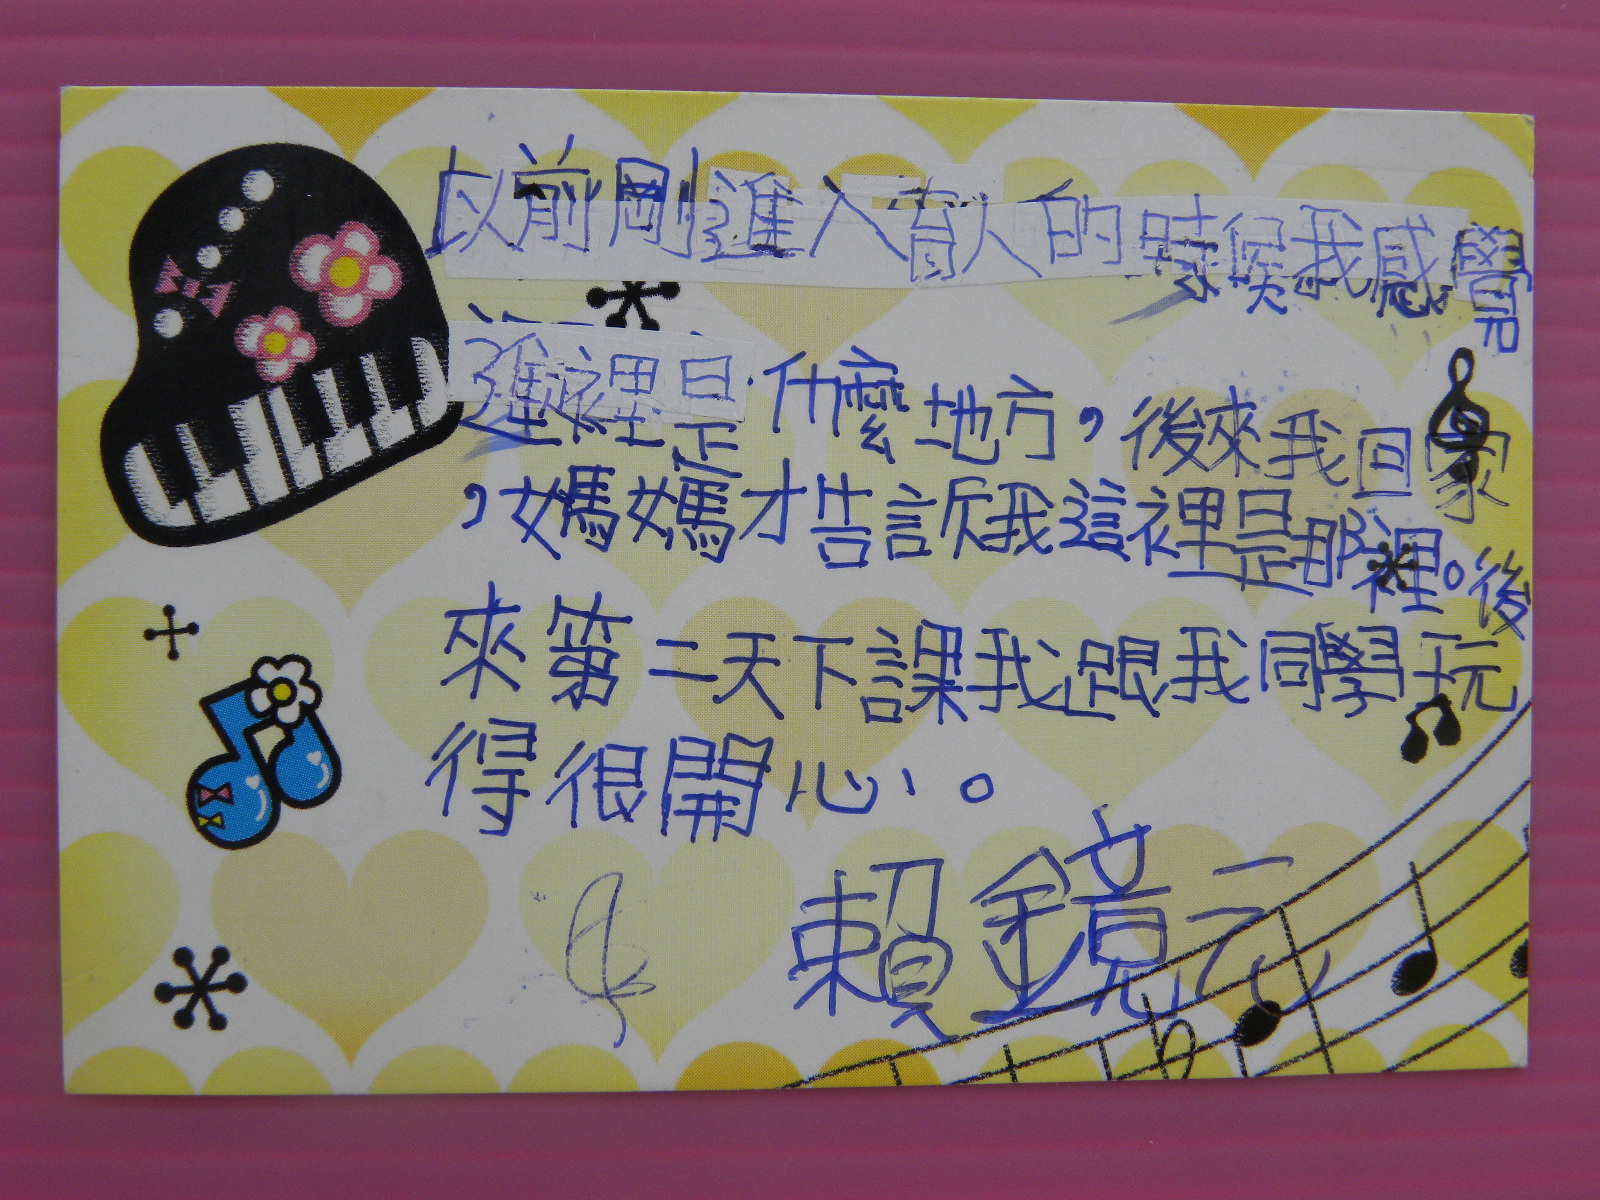 以前剛進入育人的時候我感覺
進裡是什麼地方，後來我回家
，媽媽才告訴我這裡是那裡。後
來第二天下課我跟我同學玩
得很開心。
賴鏡元